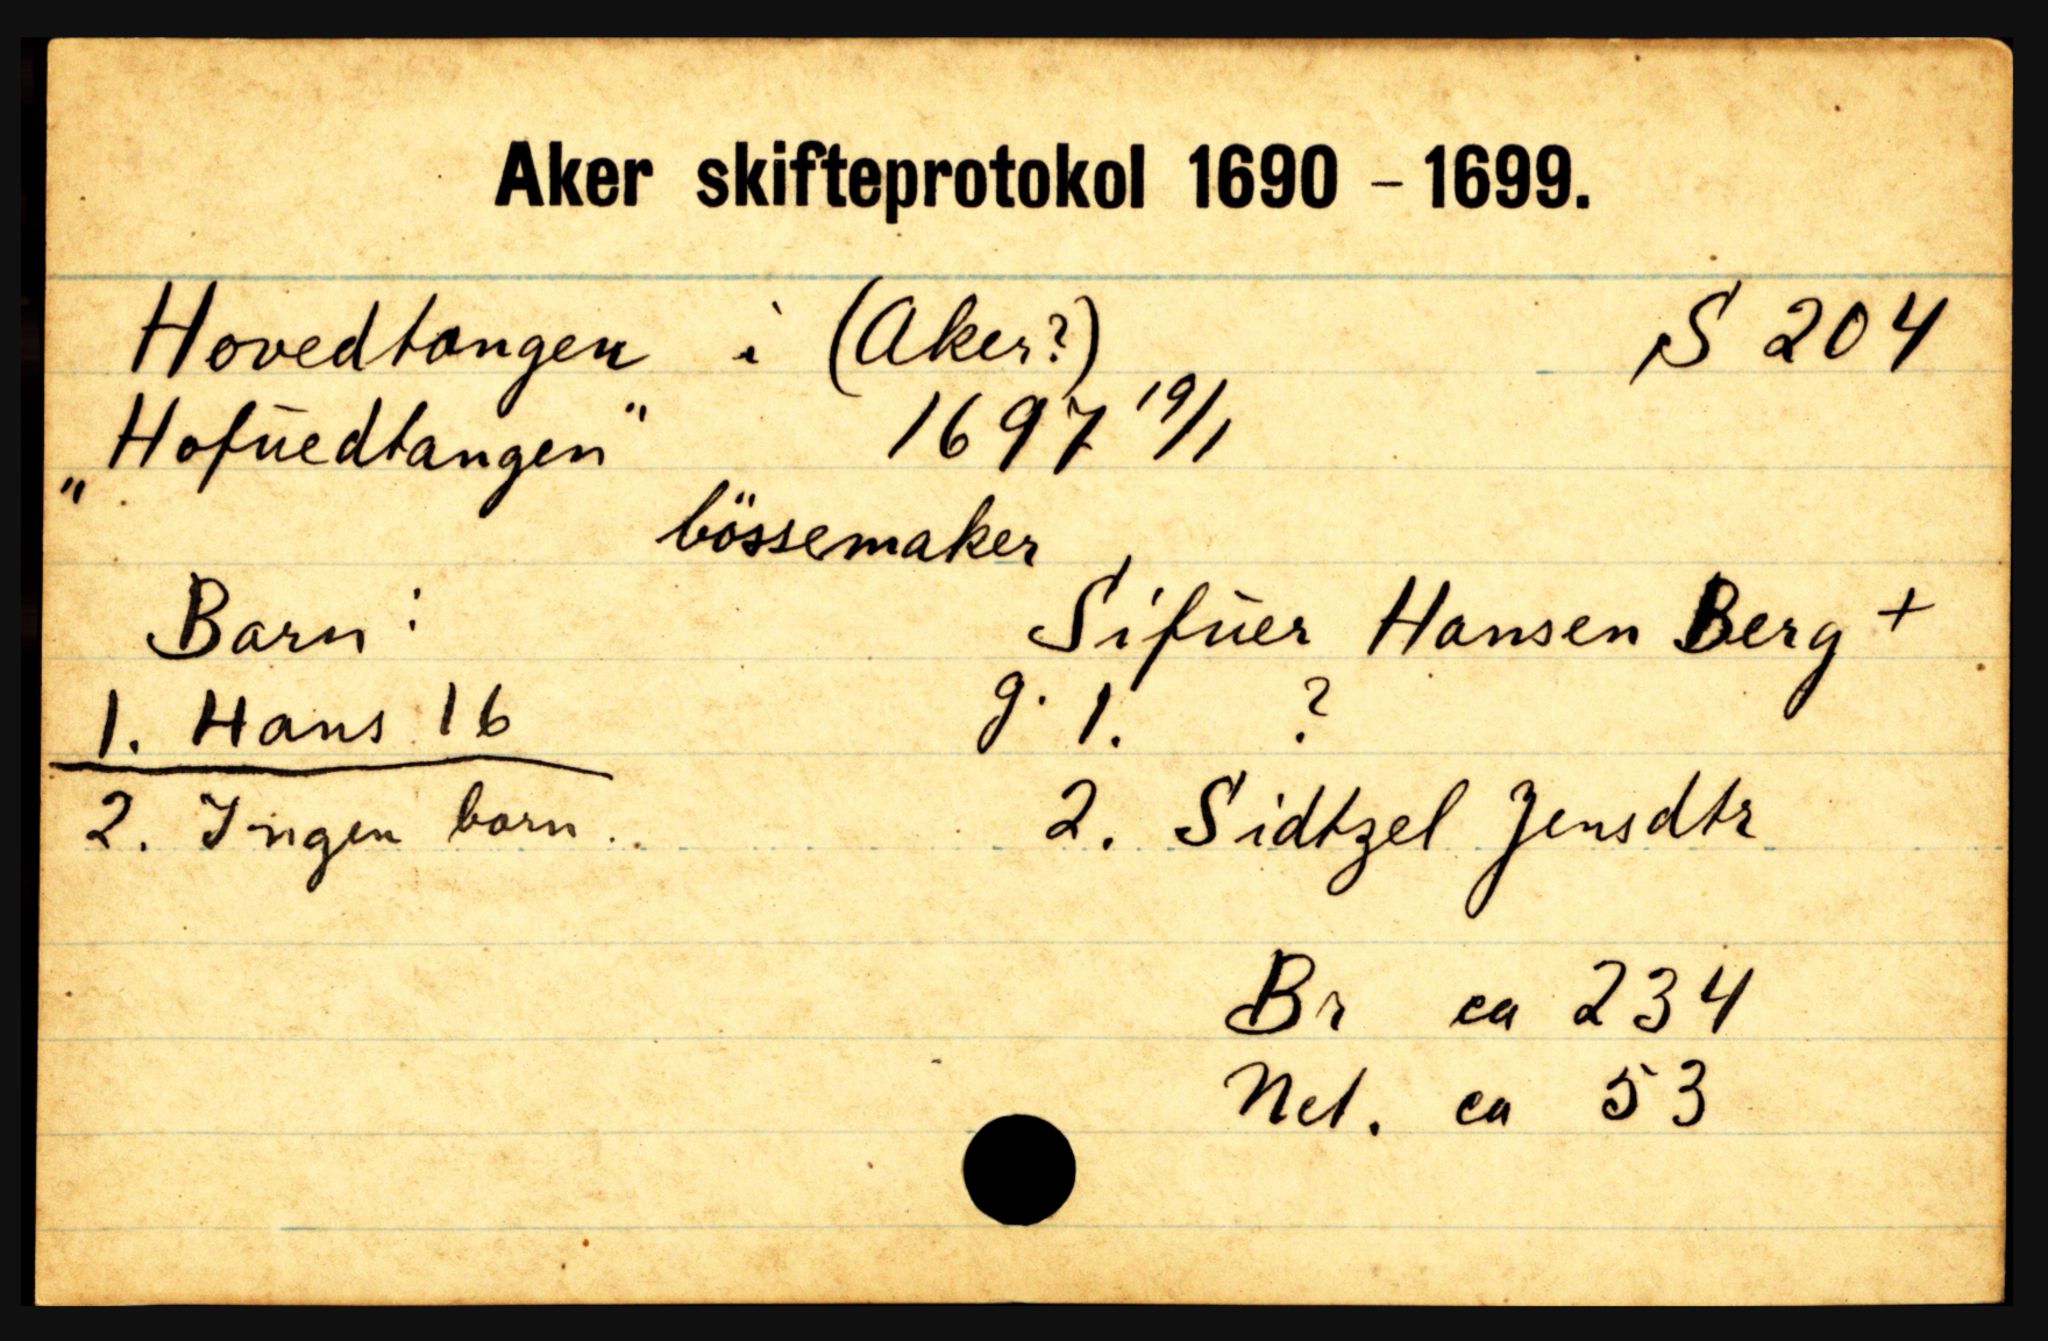 Aker skifteprotokol 1690 - 1699.
Hovedtangen i (Aker?) S 204
"Hofŭedtangen" 1697 19/1
bössemaker
Barn: Sifŭer Hansen Berg +
1. Hans 16 g. 1. ?
2. Ingen barn. 2. Sidtzel Jensdtr
Br ca 234
Net. ca 53